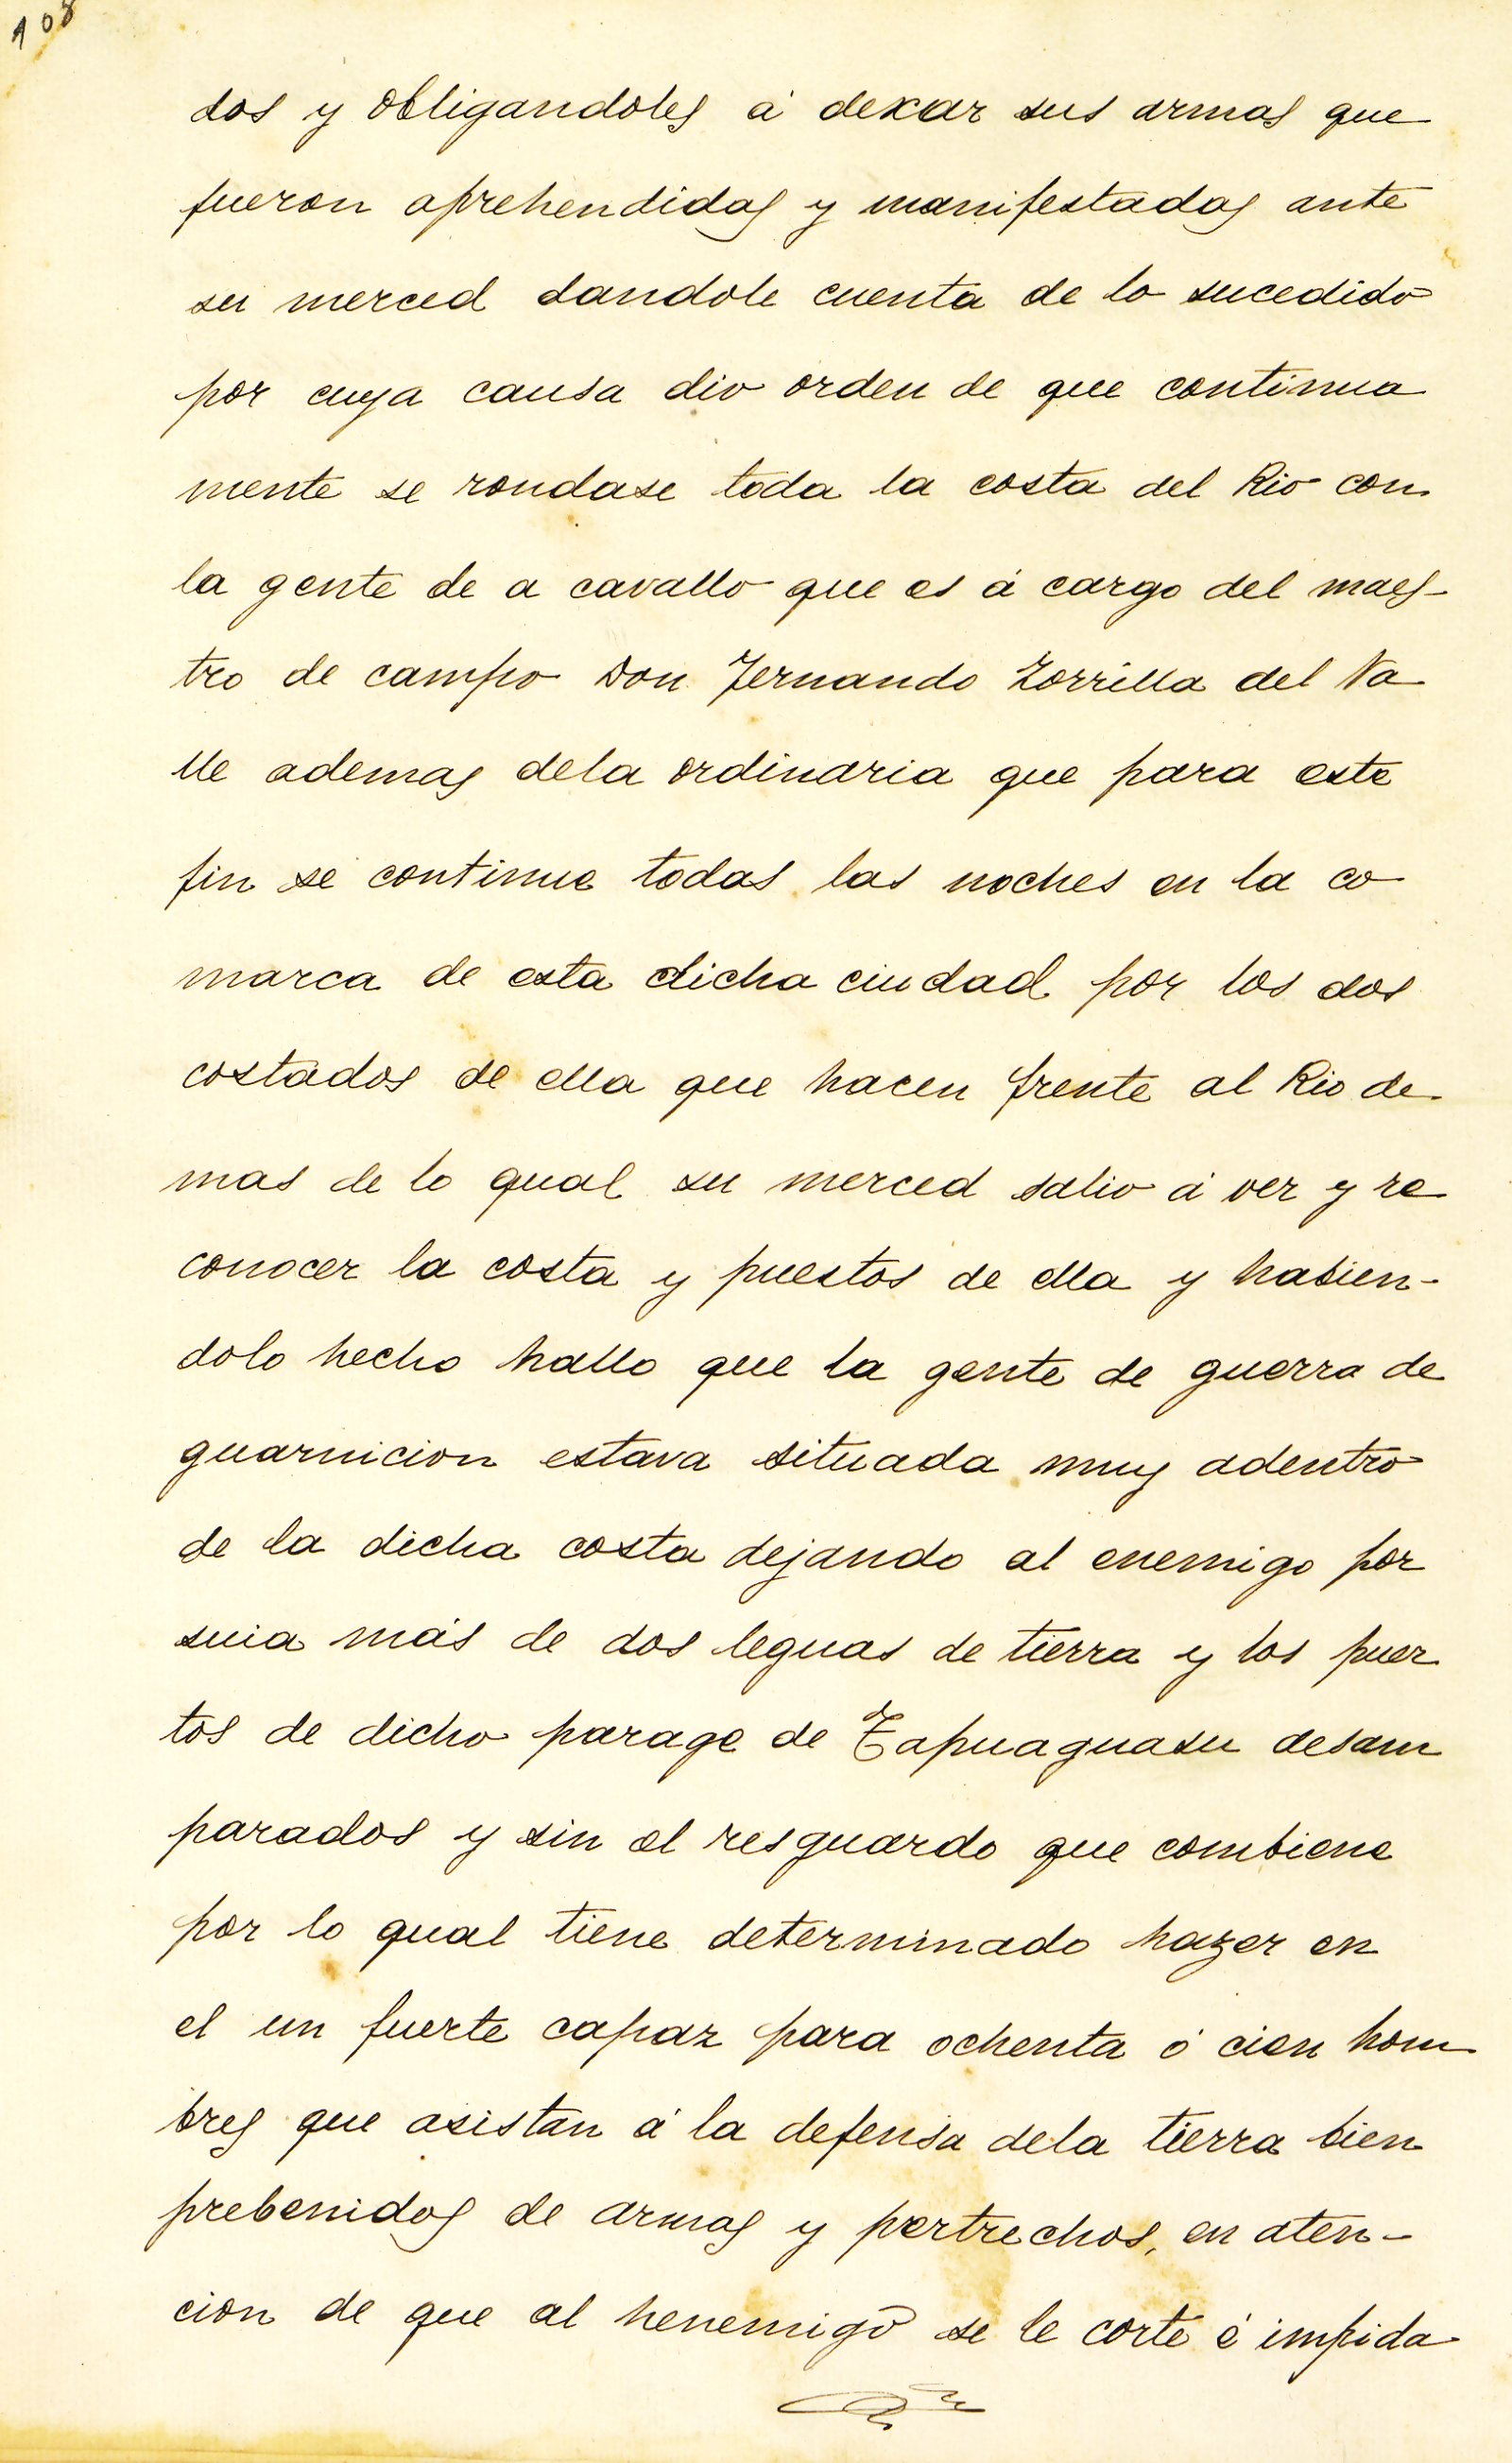 108
dos y obligandoles á dexar sus armas que
fueron aprehendidas y manifestadas ante
su merced dandole cuenta de lo sucedido
por cuya causa dio orden de que continua
mente se rondase toda la costa del Rio con
la gente de a cavallo que es á cargo del maes-
tro de campo Don Fernando Zorrilla del Va
lle ademas dela ordinaria que para este
fin se continue todas las noches en la co
marca de esta dicha ciudad por los dos
costados de ella que hacen frente al Rio de
mas de lo qual su merced salio á ver y re
conocer la costa y puestos de ella y habien-
dolo hecho hallo que la gente de guerra de
guarnicion estava situada muy adentro
de la dicha costa dejando al enemigo por
suia más de dos leguas de tierra y los puer
tos de dicho parage de Tapuaguasu desam
parados y sin el resguardo que combiene
por lo qual tiene determinado hazer en
el un fuerte capaz para ochenta ó cien hom
bres que asistan á la defensa dela tierra bien
prebenidos de armas y pertrechos, en aten-
cion de que al henemigo se le corte é impida